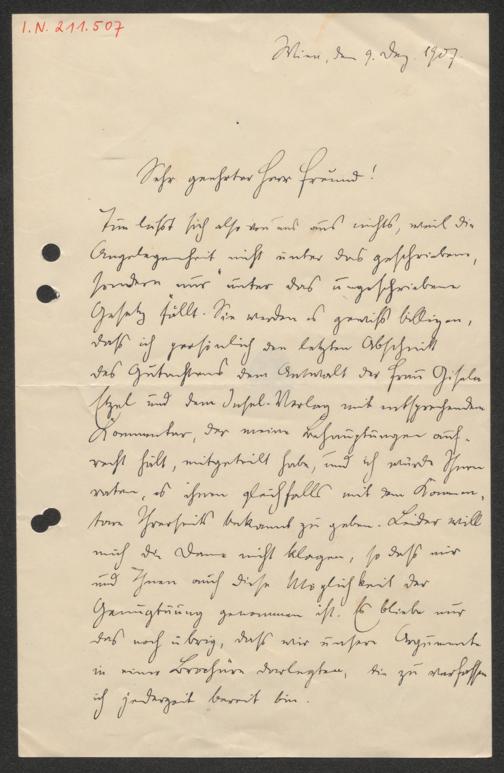 I.N. 211.507
Wien, den 9. Dez. 1907.
Sehr geehrter Herr Freund!
Tun läßt sich also von uns aus nichts, weil die
Angelegenheit nicht unter das geschriebene,
sondern nur unter das ungeschriebene
Gesetz fällt. Sie werden es gewiß billigen,
daß ich persönlich den letzten Abschnitt
des Gutachtens dem Anwalt der Frau Gisela
Etzel und dem Insel-Verlag mit entsprechendem
Kommentar, der meine Behauptungen auf-
recht hält, mitgeteilt habe, und ich würde Ihnen
raten, es ihnen gleichfalls mit dem Kommen-
tare Ihrerseits bekannt zu geben. Leider will
mich die Dame nicht klagen, so daß mir
und Ihnen auch diese Möglichkeit der
Genugtuung genommen ist. Es bliebe nur
das noch übrig, daß wir unsere Argumente
in einer Brochüre darlegten, die zu verfassen
ich jederzeit bereit bin.